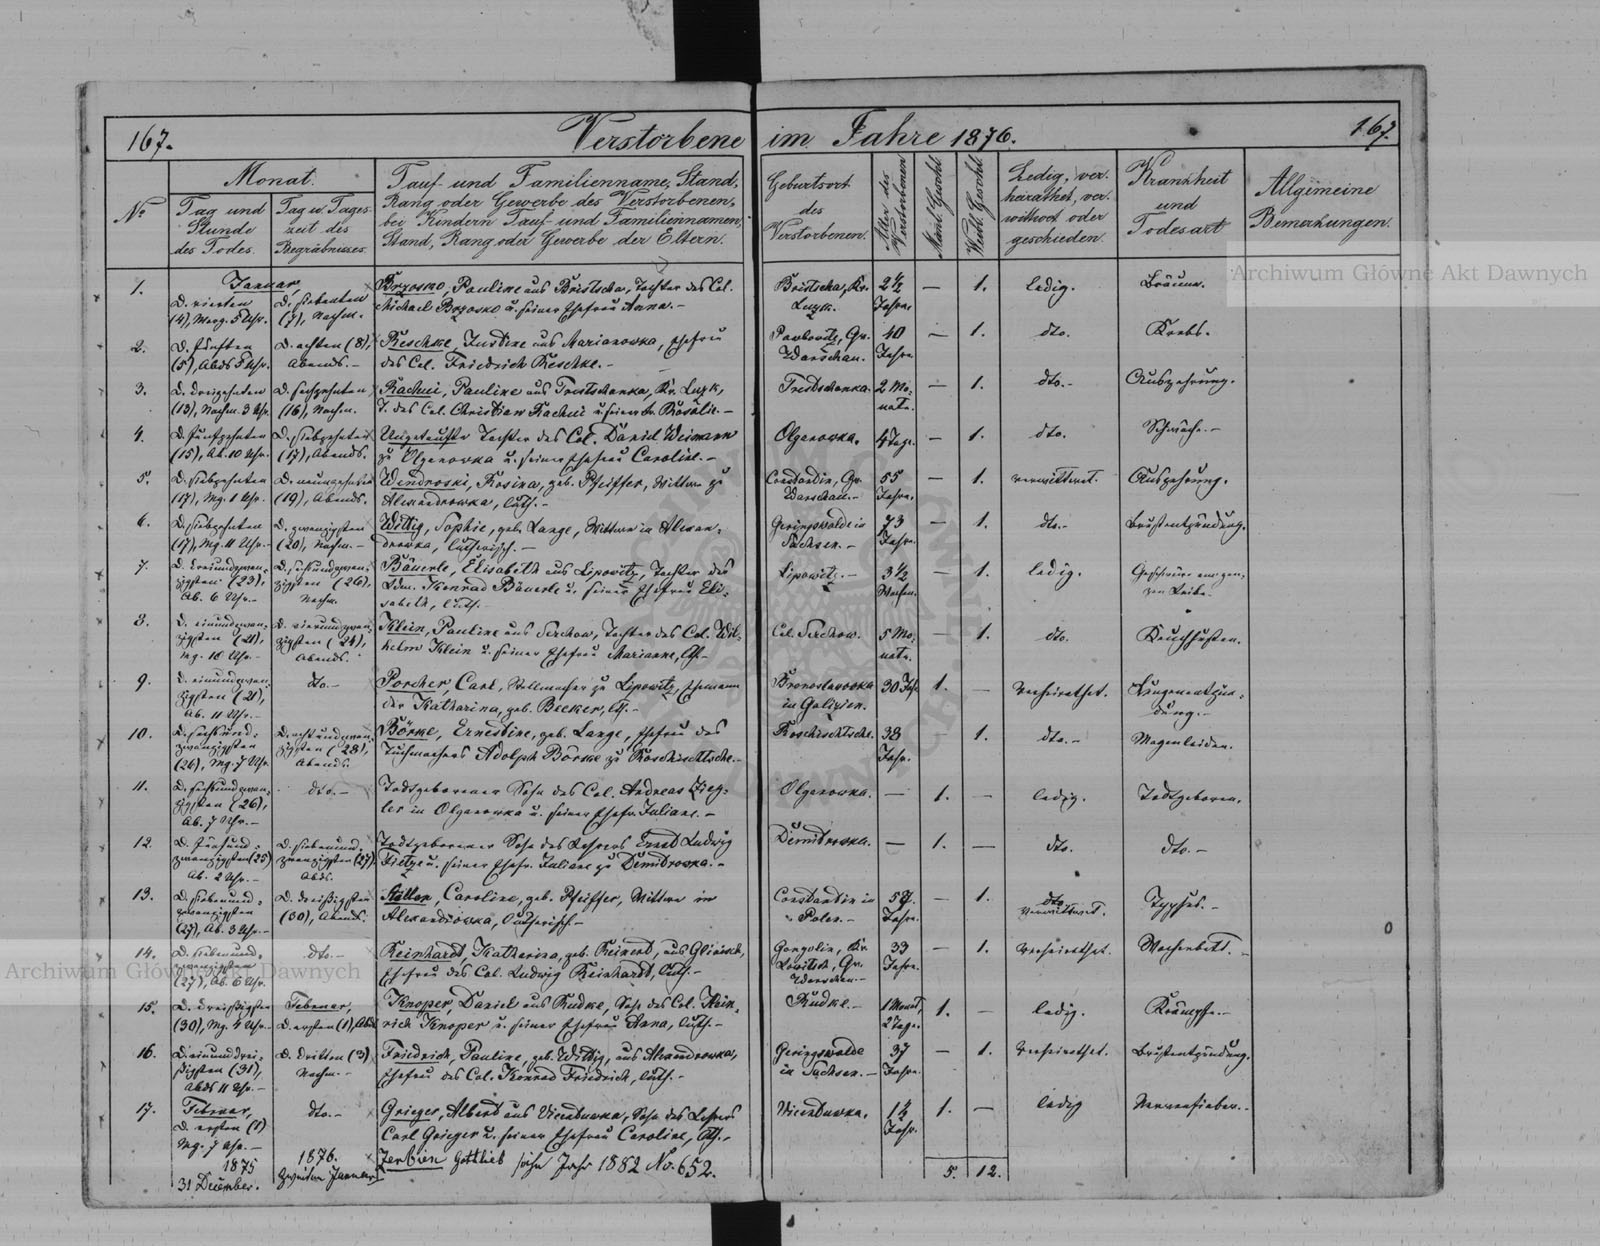 167.
Verstorbene im Jahre 1876.
167.
No
Monat.
Tag und Stunde des Todes.
Tag u. Tageszeit des Begräbnisses.
Tauf- und Familienname, Stand,
Rang oder Gewerbe des Verstorbenen,
bei Kindern Tauf- und Familiennamen,
Stand, Rang oder Gewerbe der Eltern.
Geburtsort
des
Verstorbenen.
Alter des Verstorbenen
Männl. Geschl.
Weibl. Geschl.
Ledig, ver-
heirathet, ver-
wittwet oder
geschieden.
Krankheit
und
Todesart
Allgemeine
Bemerkungen.
1.
Januar,
D. vierten
(4), Morg. 5 Uhr.
D. siebenten
(7), Nachm.
Brzosko, Pauline aus Bristscha, Tochter des Col.
Michael Brzosko u. seiner Ehefrau Anna.-
Bristscha, Kr.
Luzk.
2½
Jahre.
—
1.
ledig.
Bräune.
2.
D. fünften
(5), Abds 5 Uhr.
D. achten (8),
Abends.-
Reschke, Justine aus Marianowka, Ehefrau
des Col. Friedrich Reschke.-
Gr.
Warschau.
40
Jahre.
—
1.
dto.
Krebs.
3.
D. dreizehnten
(13), Nachm. 3 Uhr.
D. sechzehnten
(16), Nachm.
Pauline aus Kr. Luzk,
T. des Col. Christian u. seiner Fr. Rosalie.-
2 Mo-
nate.
—
1.
dto.-
Auszehrung.
4.
D. fünfzehnten
(15), Ab. 10 Uhr.
D. siebzehnten
(17), Abends.
Ungetaufte Tochter des Col. Daniel Weimann
zu Olganowka u. seiner Ehefrau Caroline.-
Olganowka.
4 Tage.
—
1.
dto.
Schwäche.-
5.
D. siebzehnten
(17), Mg. 1 Uhr.
D. neunzehnten
(19), Abends.
Wendroski, Rosina, geb. Pfeiffer, Wittwe zu
Alexandrowka, luth.-
Constantin, Gr.
Warschau.-
55
Jahre.
—
1.
verwittwet.
Auszehrung.
6.
D. siebzehnten
(17), Mg. 11 Uhr.-
D. zwanzigsten
(20), Nachm.-
Wittig, Sophie, geb. Lange, Wittwe in Alexan-
drowka, lutherisch.-
Geringswalde in
Sachsen.-
73
Jahre.
—
1.
dto.-
Brustentzündung.
7.
D. dreiundzwan-
zigsten (23),
Ab. 6 Uhr.-
D. sechsundzwan-
zigsten (26),
Nachm.
Bäuerle, Elisabeth aus Lipowitz, Tochter des
Ldm. Konrad Bäuerle u. seiner Ehefrau Eli-
sabeth, luth.
Lipowitz.-
3½
Wochen.
—
1.
ledig.
Geschwüre am gan-
zen Leibe.
8.
D. einundzwan-
zigsten (21),
Mg. 10 Uhr.-
D. vierundzwan-
zigsten (24),
Abends.
Klein, Pauline aus Serchow, Tochter des Col. Wil-
helm Klein u. seiner Ehefrau Marianne, lth.-
Col. Serchow.
5 Mo-
nate.
—
1.
dto.
Keuchhusten.
9.
D. einundzwan-
zigsten (21),
Ab. 11 Uhr.-
dto.-
Porcher, Carl, Stellmacher zu Lipowitz, Ehemann
der Katharina, geb. Becker, lth.-
Bronoslawowka
in Galizien.
30 Jahr.
1.
—
verheirathet.
Lungenentzün-
dung.-
10.
D. sechsund-
zwanzigsten
(26), Mg. 7 Uhr.
D. achtundzwan-
zigsten (28),
Abends.
Börke, Ernestine, geb. Lange, Ehefrau des
Tuchmachers Adolph Börke zu Roschischtsche.-
Roschischtsche.
38
Jahr.
1.
dto.-
Magenleiden.
11.
D. sechsundzwan-
zigsten (26),
Ab. 7 Uhr.-
dto.-
Todtgeborener Sohn des Col. Andreas Zieg-
ler in Olganowka u. seiner Ehefr. Juliane.-
Olganowka.
—
1.
—
ledig.
Todtgeboren.
12.
D. fünfund-
zwanzigsten (25)
Ab. 2 Uhr.-
D. siebenund-
zwanzigsten (27)
Abds.
Todtgeborener Sohn des Lehrers Ernst Ludwig
Tietze u. seiner Ehefr. Juliane zu Demidrowka.-
Demidrowka.
—
1.
—
dto.
dto.-
13.
D. siebenund-
zwanzigsten
(27), Ab. 3 Uhr.-
D. dreißigsten
(30), Abends.
Caroline, geb. Pfeiffer, Wittwe in
Alexandrowka, lutherisch.-
Constantin in
Polen.-
57
Jahre.
—
1.
dto
verwittwet.
Typhus.-
14.
D. siebenund-
zwanzigsten
(27), Ab. 6 Uhr.
dto.-
Reinhardt, Katharina, geb. Reinert, aus
Ehefrau des Col. Ludwig Reinhardt, luth.-
Gongolin, Kr.
Lowitsch, Gr.
Warschau.-
33
Jahre.
—
1.
verheirathet.
Wochenbett.-
15.
D. dreißigsten
(30), Mg. 4 Uhr.-
Februar,
D. ersten (1), Abds
Knoper, Daniel aus Rudke, Sohn des Col. Hein-
rich Knoper u. seiner Ehefrau Anna, luth.-
Rudke.-
1 Monat,
2 Tage.
1.
—
ledig.
Krämpfe.-
16.
D. einunddrei-
ßigsten (31),
Abds 11 Uhr.-
D. dritten (3)
Nachm.-
Friedrich, Pauline, geb. Wittig, aus Alexandrowka,
Ehefrau des Col. Konrad Friedrich, luth.-
Geringswalde
in Sachsen.-
37
Jahre.
—
1.
verheirathet.
Brustentzündung.
17.
Februar,
D. ersten (1)
Mg. 7 Uhr.-
dto.-
Grieger, Albert aus Sohn des Lehrers
Carl Grieger u. seiner Ehefrau Caroline, lth.-
1½
Jahr.
1.
—
ledig
Nervenfieber.-
1875
31 December.
1876.
zweiten Januar
Zerbien Gottlieb siehe Jahr 1882 No. 652.
5. 12.
Archiwum Główne Akt Dawnych
Archiwum Główne Akt Dawnych